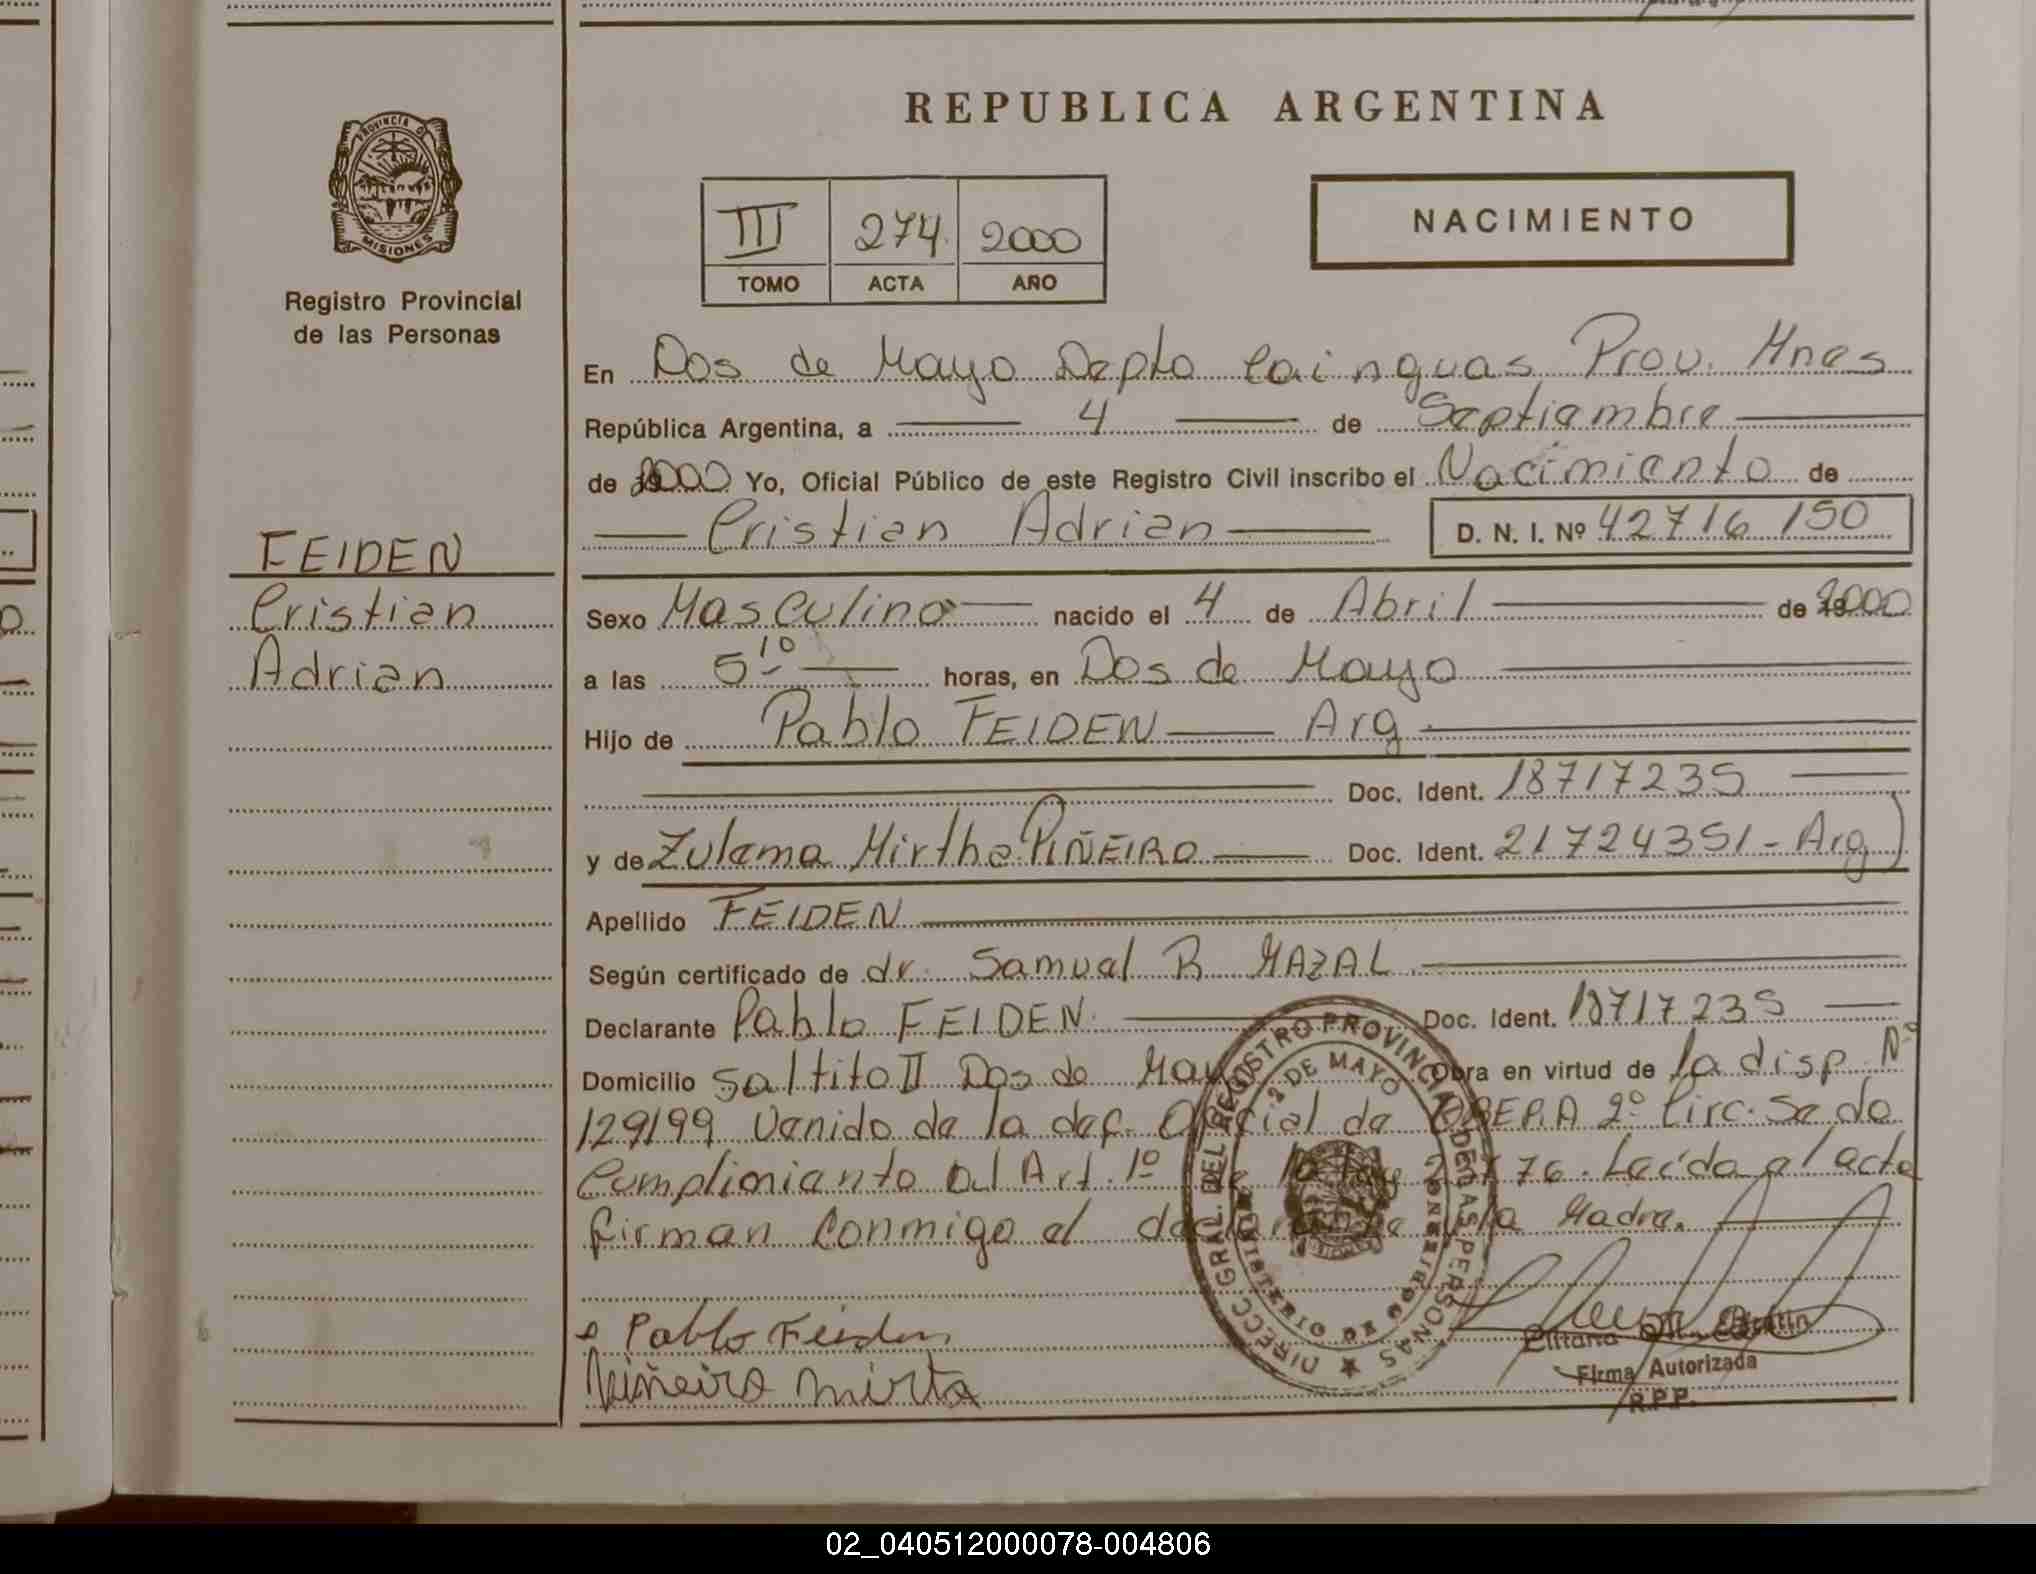 REPUBLICA ARGENTINA
PROVINCIA DE
MISIONES
Registro Provincial
de las Personas
III 274 2000
TOMO ACTA AÑO
NACIMIENTO
En Dos de Mayo Depto Cainguas Prov. Mnes
República Argentina, a 4 de Septiembre
de 2000 Yo, Oficial Público de este Registro Civil inscribo el Nacimiento de
Cristian Adrian D. N. I. Nº 42716 150
FEIDEN
Cristian
Adrian
Sexo Masculino nacido el 4 de Abril de 2000
a las 5 10 horas, en Dos de Mayo
Hijo de Pablo FEIDEN Arg
Doc. Ident. 18717235
y de Zulema Mirtha PIÑEIRO Doc. Ident. 21724351 - Arg)
Apellido FEIDEN
Según certificado de dr. Samuel R MAZAL
Declarante Pablo FEIDEN Doc. Ident. 18717235
Domicilio Saltito II Dos de Mayo Obra en virtud de la disp. Nº
129/99 Venido de la def. Oficial de OBERA 2º Circ. Se da
Cumplimiento al Art. 1º de la ley 76. Leída el acta
firman conmigo el declarante y la Madre.
DIRECC. GRAL. DEL REGISTRO PROVINCIAL DE LAS PERSONAS
2 DE MAYO
MINISTERIO DE GOBIERNO
Pablo Feiden
Piñeiro Mirta
Firma Autorizada
R.P.P.
02_040512000078-004806